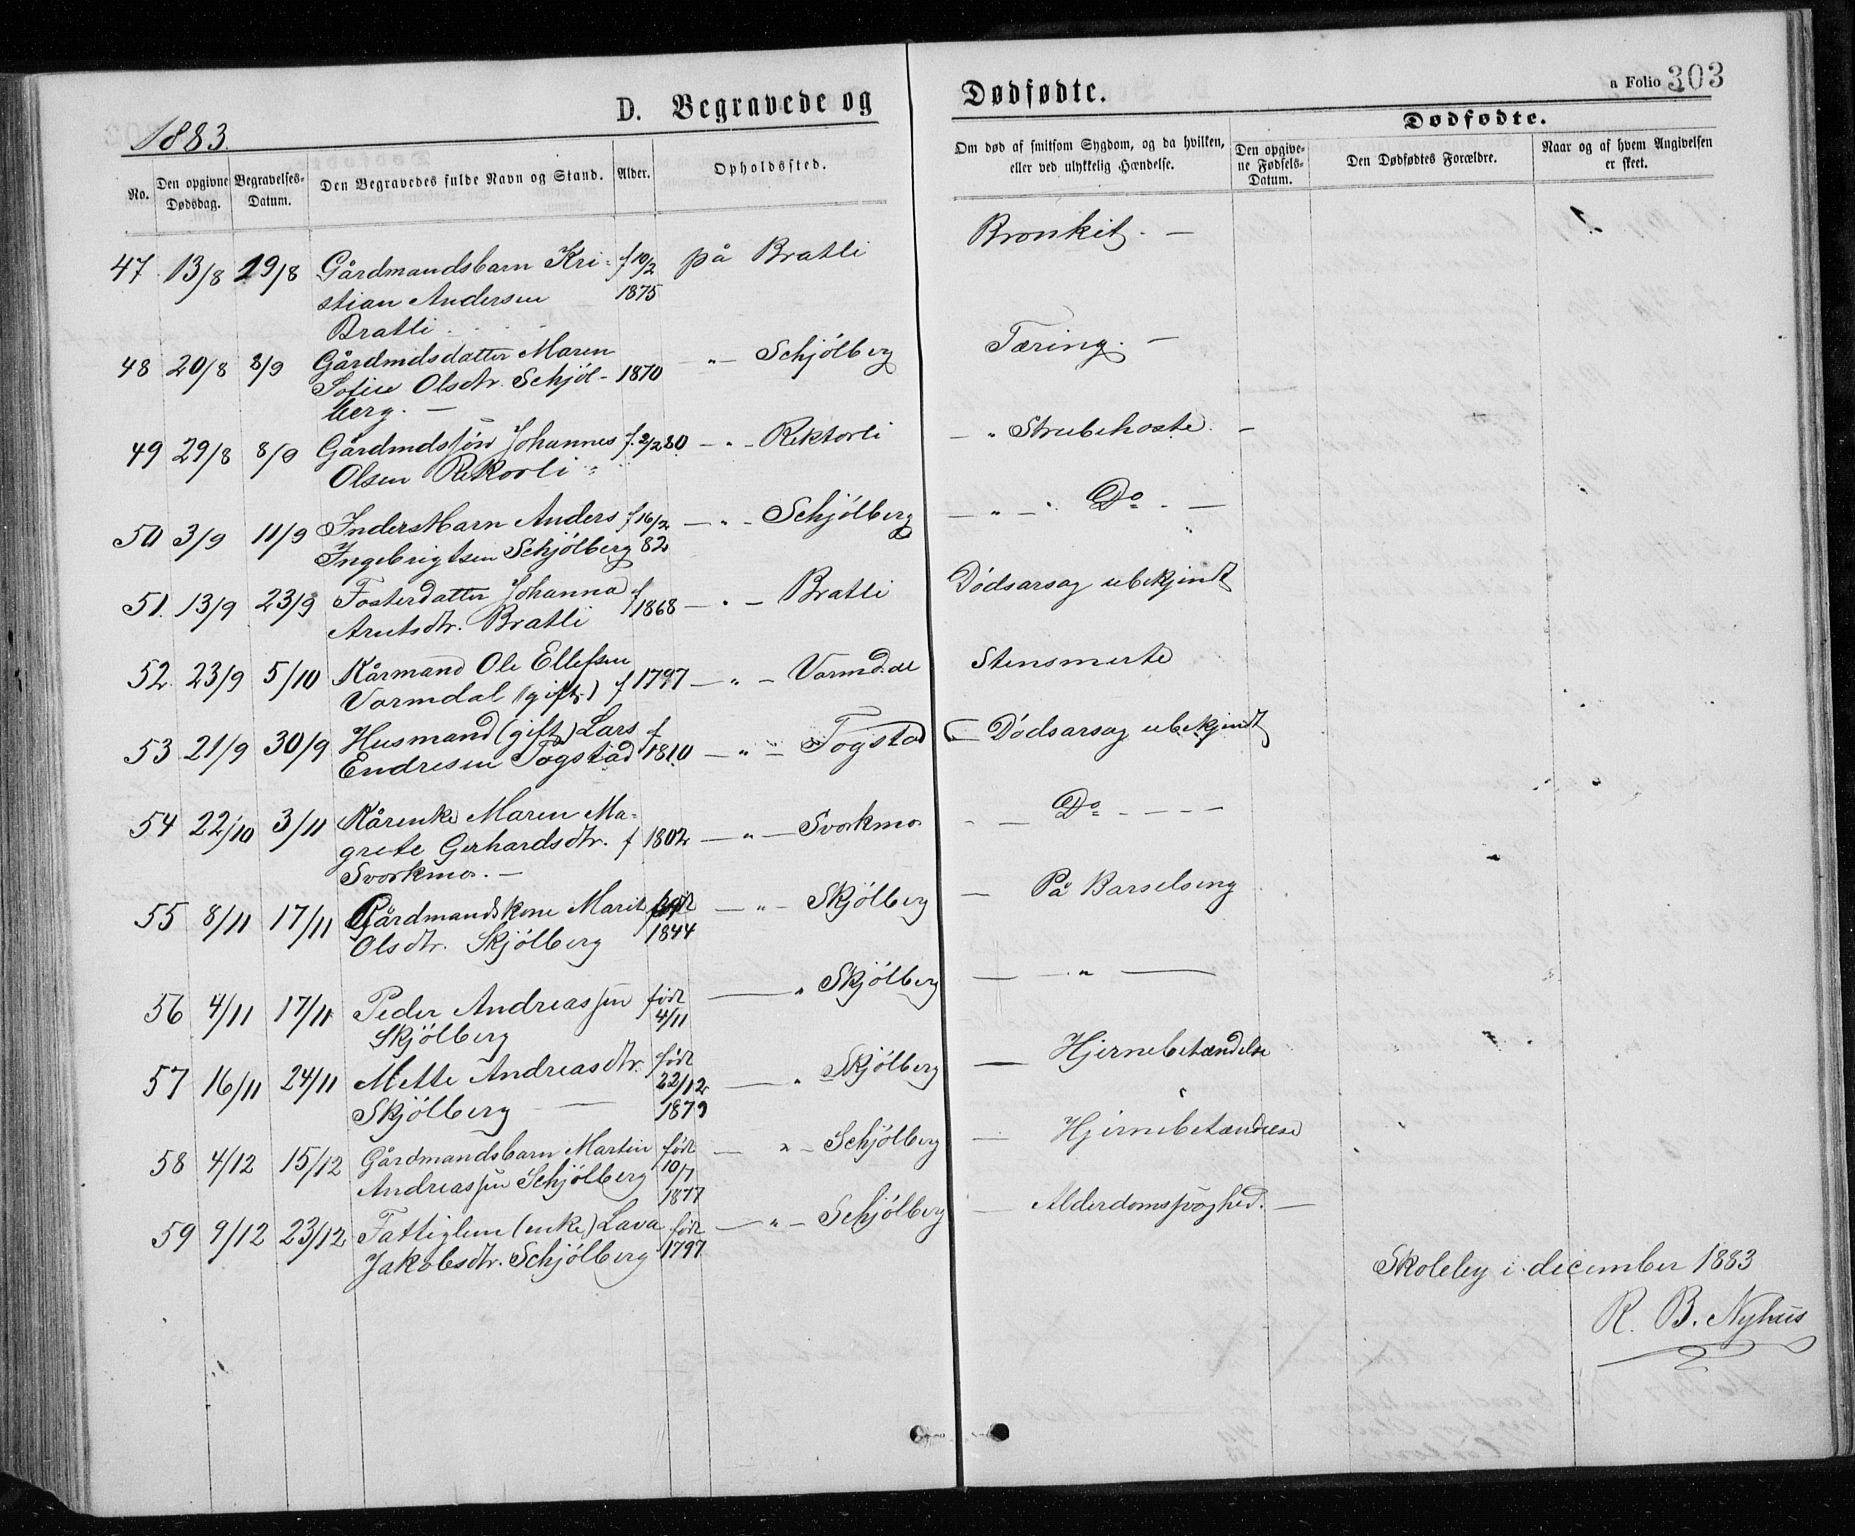 D. Begravede og Dødfødte.
a Folio 303
1883.
Dødfødte.
No.
Den opgivne Dødsdag.
Begravelses-Datum.
Den Begravedes fulde Navn og Stand.
Alder.
Opholdssted.
Om død af smitsom Sygdom, og da hvilken, eller ved ulykkelig Hændelse.
Den opgivene Fødsels-Datum.
Den Dødfødtes Forældre.
Naar og af hvem Angivelsen er skeet.
47 13/8 19/8 Gårdmandsbarn Kri- f 10/2 på Bratli Bronkit. —
stian Andersen 1875
Bratli.
48 20/8 8/9 Gårdmdsdatter Maren — " — Schjölberg Tæring. —
Sofie Olsdtr. Schjöl- 1870
berg. —
49 29/8 8/9 Gårdmdssön Johannes f. 2/2 80 — " — Rektorli — " Strubehoste. —
Olsen Rekorli
50 3/9 11/9 Inderstbarn Anders f 16/2 — " — Schjölberg — " — " Do. —
Ingebrigtsen Schjölberg 82
51. 13/9 23/9 Fosterdatter Johanna f — " — Bratli Dödsarsag ubekjendt
Arntsdtr. Bratli 1868
52. 23/9 5/10 Kårmand Ole Ellefsen Stensmerte
Vormdal (gift) f 1797 — " — Vormdal
53 21/9 30/9 Husmand (gift) Lars f — Dödsarsag ubekjendt
Endresen Togstad 1810 — " — Togstad
54 22/10 3/11 Kårenke Maren Ma- — Do — — —
grete Gerhardsdtr. f 1802 — " — Svorkmo
Svorkmo. —
55 8/11 17/11 Gårdmandskone Marit født — " — Skjölberg — På Barselseng
Olsdtr. Skjölberg 1844
56 4/11 17/11 Peder Andreassen födt — " Skjölberg — " —
Skjölberg 4/11
57 16/11 24/11 Mette Andreasdtr. födt — " Skjölberg — Hjernebetændelse
22/12
Skjölberg — 1879
58 4/12 15/12 Gårdmandsbarn Martin födt — " — Schjölberg — Hjernebetændelse
10/7
Andreassen Schjölberg 1877
59 9/12 23/12 Fattiglem (enke) Lava födt — " — Schjölberg — Alderdomssvaghed. —
Jakobsdtr. Schjölberg 1797
Skoleby i december 1883
R. B. Nyhus